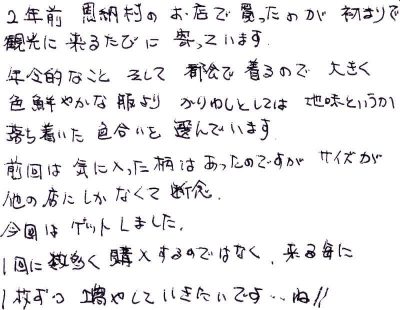 2年前 恩納村の お店で 買ったのが 初まりで
観光に 来るたびに 寄っています.
年令的なこと そして 都会で 着るので 大きく
色鮮やかな服より かりゆしとしては 地味というか
落ち着いた 色合いを 選んでいます
前回は 気に入った柄は あったのですが サイズが
他の店にしかなくて 断念.
今回は ゲットしました.
1回に 数多く 購入するのではなく、来る毎に
1枚ずつ 増やしていきたいです…ね!!